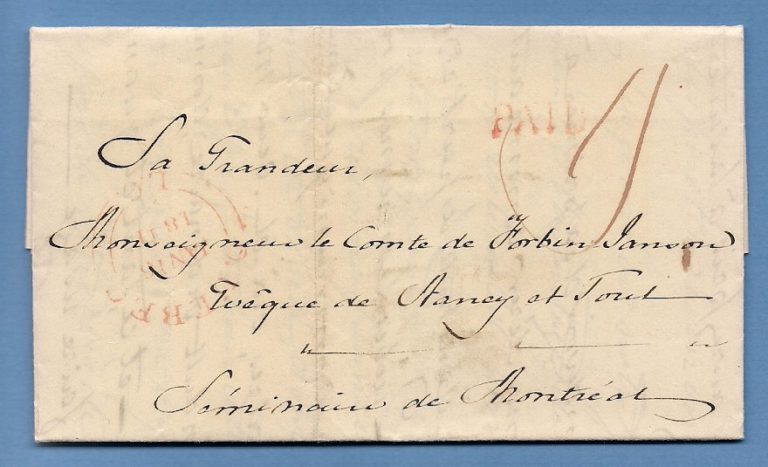 PAID
Sa Grandeur,
Monseigneur le Comte de Forbin Janson
Evêque de Nancy et Toul
Séminaire de Montréal
QUEBEC